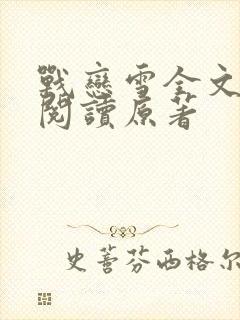 戰戀雪全文
閱讀原著
史蒼芬西格尔